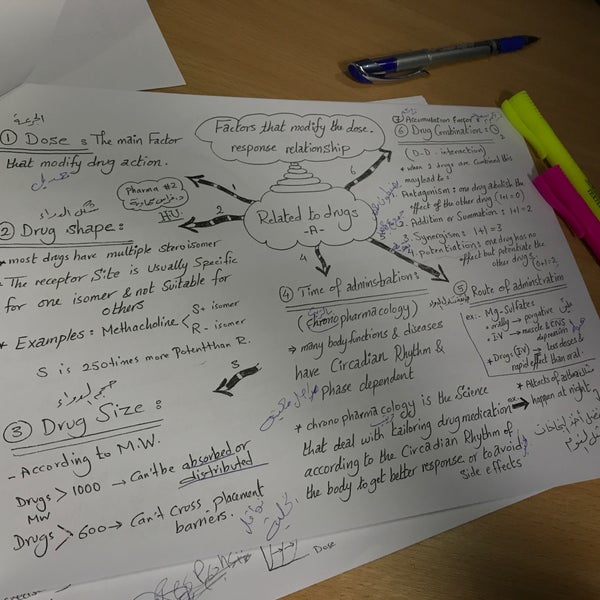 Factors that modify the dose.
response relationship
Related to drugs
-A-
Pharma #2
HU
الجرعة
① Dose : The main Factor
that modify drug action.
تعديل
1
شكل الدواء
2
② Drug shape :
* most drugs have multiple steroisomer
- The receptor Site is Usually Specific
for one isomer & not suitable for
others
* Examples : Methacholine < S+ isomer
R- isomer
S is 250 times more Potent than R.
حجم الدواء
3
③ Drug Size :
- According to M.W.
Drugs > 1000 → Can't be absorbed or
distributed
MW
Drugs > 600 → Can't Cross Placement
barriers.
4
④ Time of adminstration :
(chronopharmacology)
⇒ many body functions & diseases
have Circadian Rhythm &
phase dependent
* chrono pharmacology is the Science
that deal with tailoring drug medication
according to the Circadian Rhythm of
the body to get better response or to avoid
Side effects
ex.
* Attacks of asthma
happen at night.
⑤ Route of adminstration
ex:- Mg-Sulfates
• orally → purgative
• IV → muscle & CNS
depression
* Drugs (IV) → less doses &
rapid effect than oral.
6
⑦ Accumulation
⑥ Drug Combination :
(D-D- interaction)
* when 2 drugs are combined this
may lead to :
Antagonism : one drug abolish the
effect of the other drug (1+1=0)
2. Addition or Summation : 1+1=2
3. Synergism : 1+1=3
4. Potentiation : one drug has no
effect but potentiate the
other drug
0+1=2
Dose